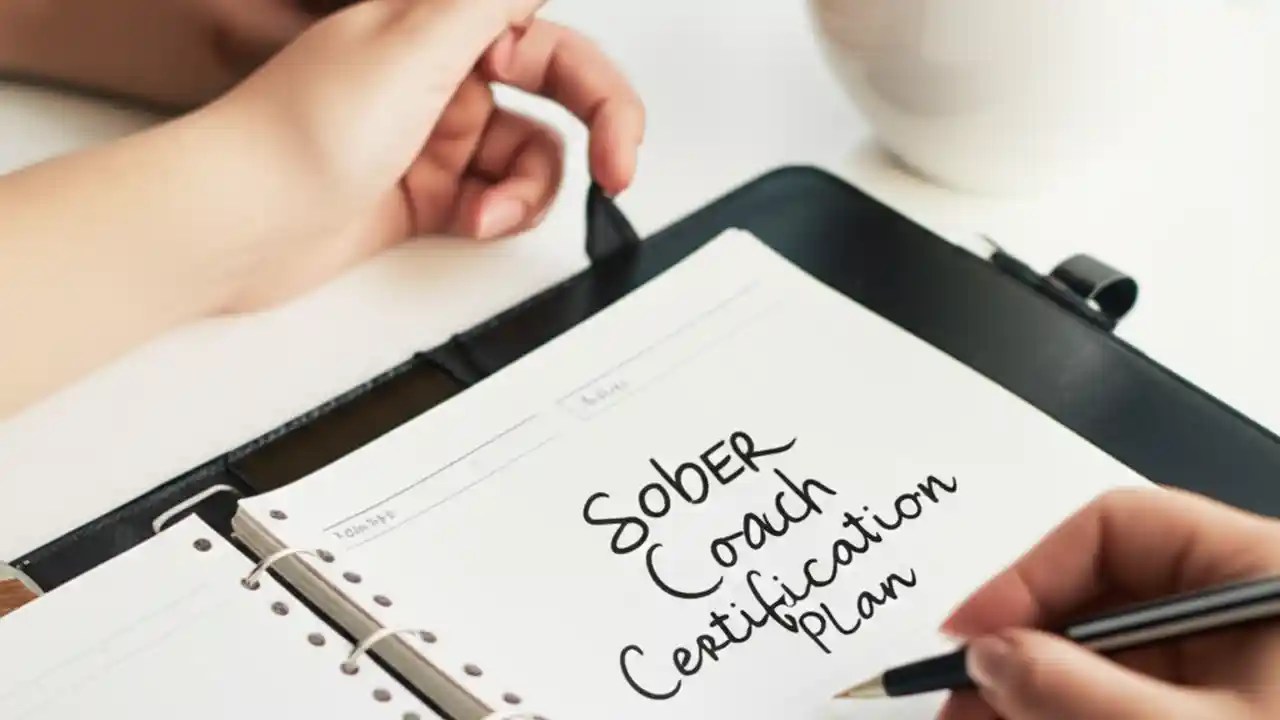 SOBER
Coach
Certification
PLan